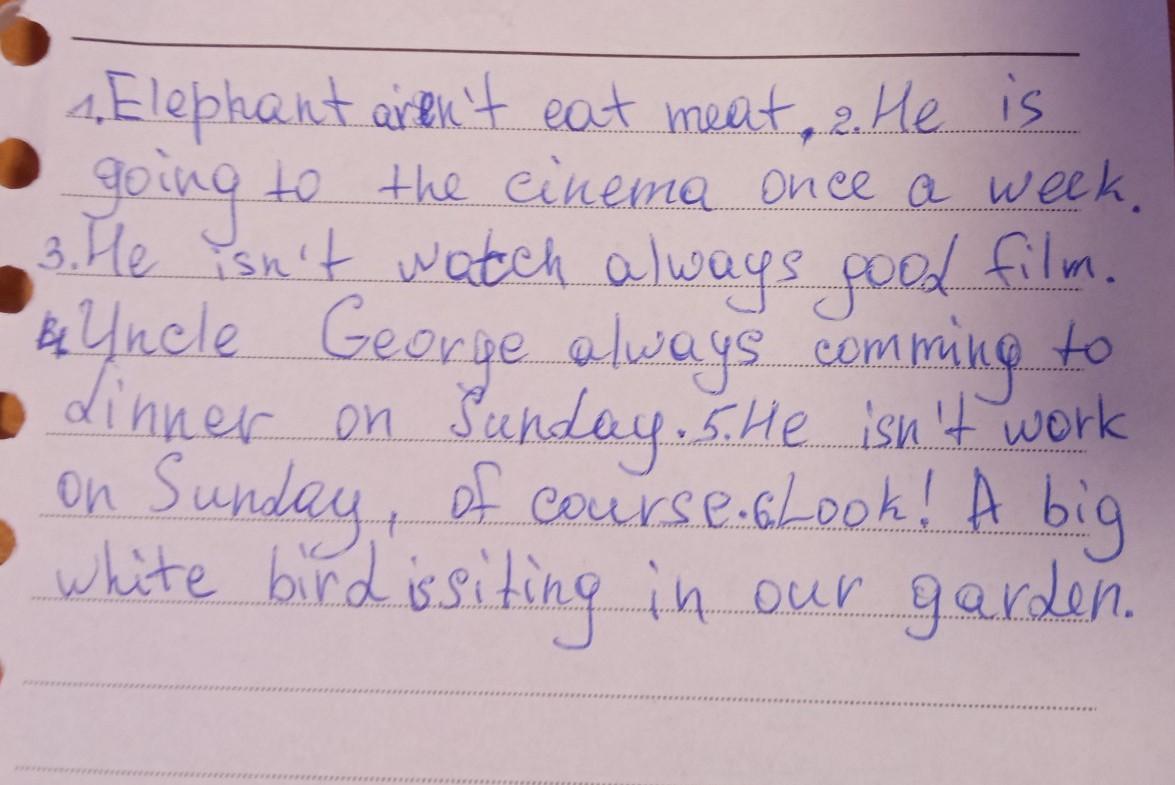 1. Elephant aren't eat meat. 2. He is
going to the cinema once a week.
3. He isn't watch always good film.
4. Uncle George always comming to
dinner on Sunday. 5. He isn't work
on Sunday, of course. 6 Look! A big
white bird is siting in our garden.